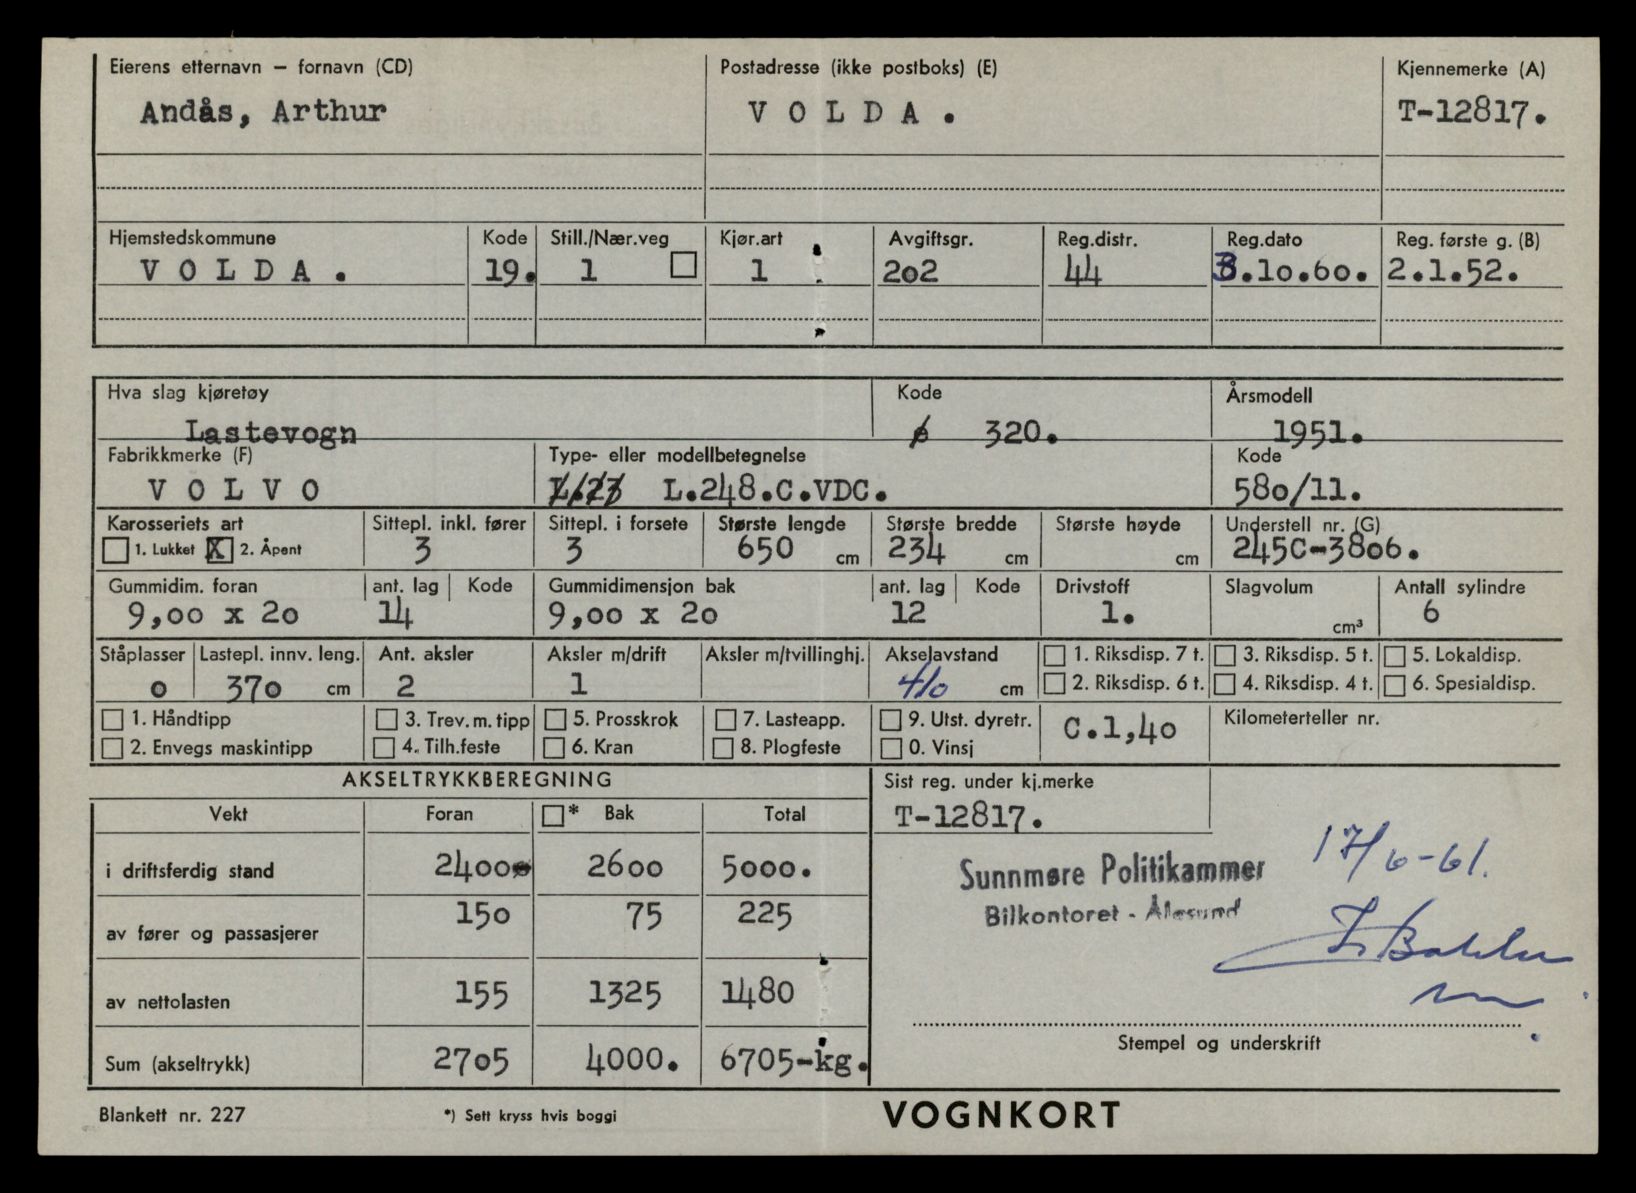 Eierens etternavn — fornavn (CD) Postadresse (ikke postboks) (E) Kjennemerke (A)
Andås, Arthur V O L D A . T-12817.
Hjemstedskommune Kode Still./Nær.veg Kjør.art Avgiftsgr. Reg.distr. Reg.dato Reg. første g. (B)
V O L D A . 19. 1 1 202 44 3.10.60. 2.1.52.
Hva slag kjøretøy Kode Årsmodell
Lastevogn 320. 1951.
Fabrikkmerke (F) Type- eller modellbetegnelse Kode
V O L V O L.248.C.VDC. 580/11.
Karosseriets art Sittepl. inkl. fører Sittepl. i forsete Største lengde Største bredde Største høyde Understell nr. (G)
1. Lukket X 2. Åpent 3 3 650 cm 234 cm cm 245C-3806.
Gummidim. foran ant. lag Kode Gummidimensjon bak ant. lag Kode Drivstoff Slagvolum Antall sylindre
9,00 x 20 14 9,00 x 20 12 1. cm³ 6
Ståplasser Lastepl. innv. leng. Ant. aksler Aksler m/drift Aksler m/tvillinghj. Akselavstand 1. Riksdisp. 7 t. 3. Riksdisp. 5 t. 5. Lokaldisp.
0 370 cm 2 1 410 cm 2. Riksdisp. 6 t. 4. Riksdisp. 4 t. 6. Spesialdisp.
1. Håndtipp 3. Trev. m. tipp 5. Prosskrok 7. Lasteapp. 9. Utst. dyretr. C.1,40 Kilometerteller nr.
2. Envegs maskintipp 4. Tilh.feste 6. Kran 8. Plogfeste 0. Vinsj
AKSELTRYKKBEREGNING Sist reg. under kj.merke
Vekt Foran * Bak Total T-12817.
i driftsferdig stand 2400 2600 5000.
av fører og passasjerer 150 75 225
av nettolasten 155 1325 1480
Sum (akseltrykk) 2705 4000. 6705-kg.
17/6-61.
Sunnmøre Politikammer
Bilkontoret - Ålesund
Stempel og underskrift
Blankett nr. 227 *) Sett kryss hvis boggi VOGNKORT